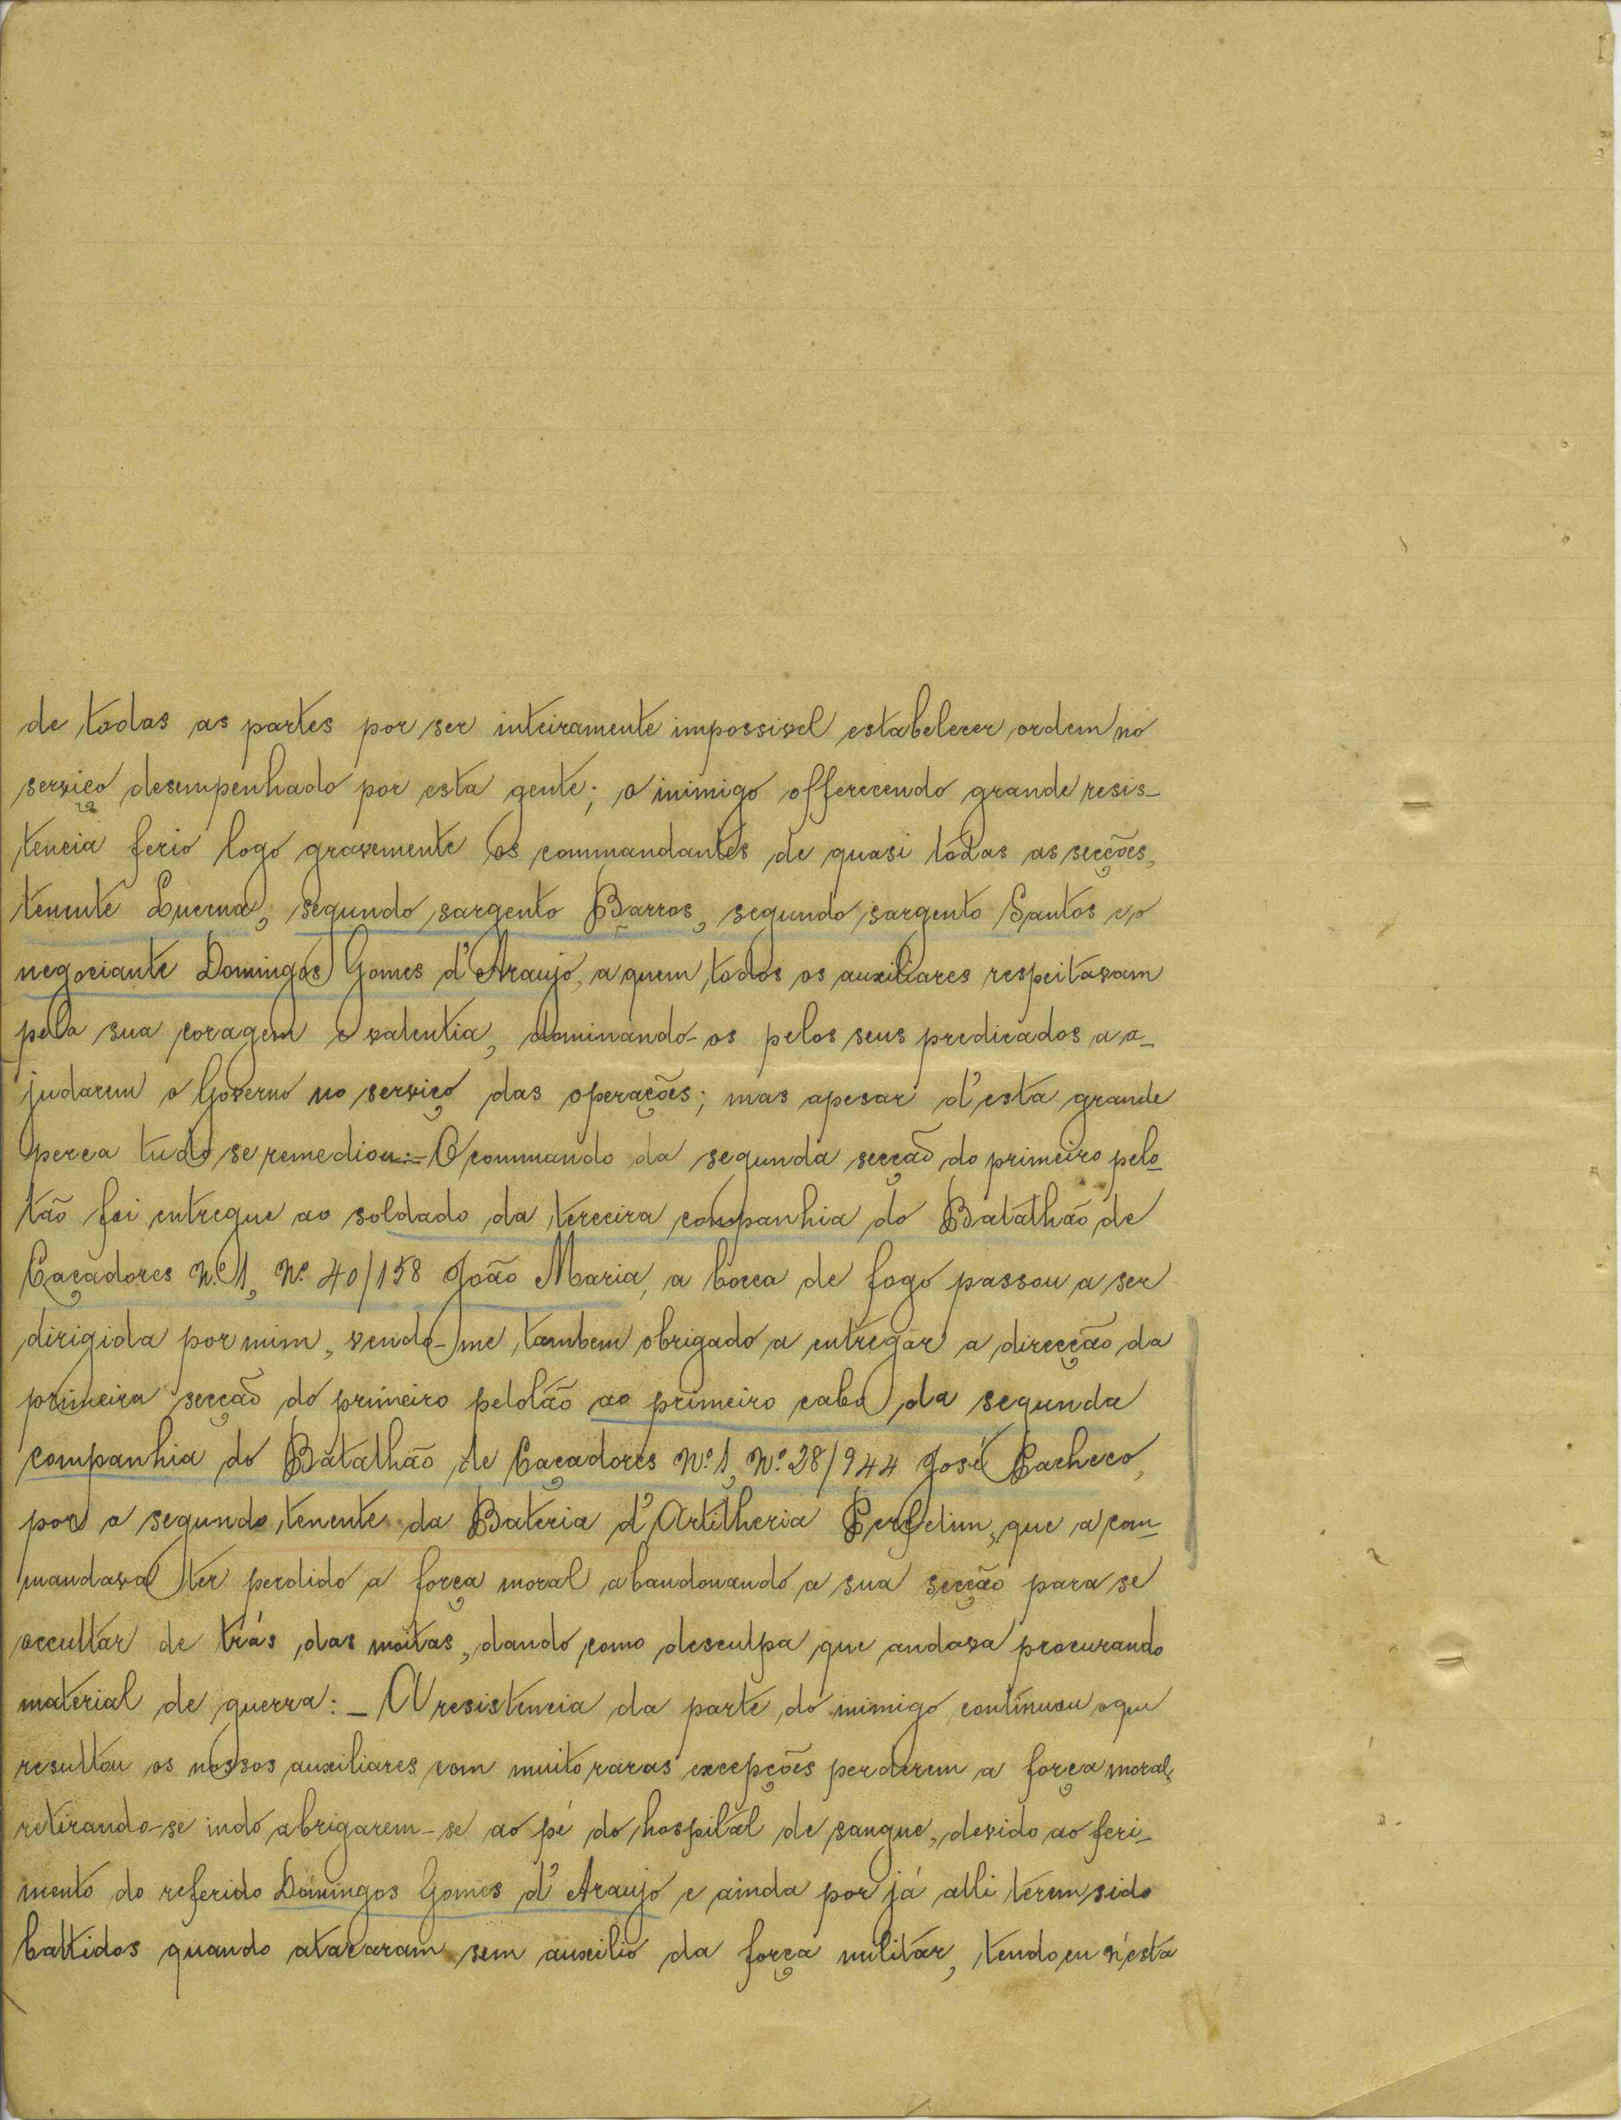 de todas as partes por ser inteiramente impossivel estabelecer ordem no
serviço desempenhado por esta gente; o inimigo offerecendo grande resis-
tencia ferio logo gravemente os commandantes de quasi todas as secções,
tenente Lucena, segundo sargento Barros, segundo sargento Santos e o
negociante Domingos Gomes d'Araujo, a quem todos os auxiliares respeitavam
pela sua coragem e valentia, dominando-os pelos seus predicados a a-
judarem o Governo no serviço das operações; mas apesar d'esta grande
perca tudo se remediou:- O commando da segunda secção do primeiro pelo-
tão foi entregue ao soldado da terceira companhia do Batalhão de
Caçadores N.º 1, N.º 40/158 João Maria, a bocca de fogo passou a ser
dirigida por mim, vendo-me tambem obrigado a entregar a direcção da
primeira secção do primeiro pelotão ao primeiro cabo da segunda
companhia do Batalhão de Caçadores N.º 1, N.º 28/944 José Pacheco,
por o segundo tenente da Bateria d'Artilheria que a com-
mandava ter perdido a força moral abandonando a sua secção para se
occultar de trás das moitas, dando como desculpa que andava procurando
material de guerra:- A resistencia da parte do inimigo continuou o que
resultou os nossos auxiliares com muito raras excepções perderem a força moral,
retirando-se indo abrigarem-se ao pé do hospital de sangue, devido ao feri-
mento do referido Domingos Gomes d'Araujo e ainda por já alli terem sido
battidos quando atacaram sem auxilio da força militar, tendo eu n'esta